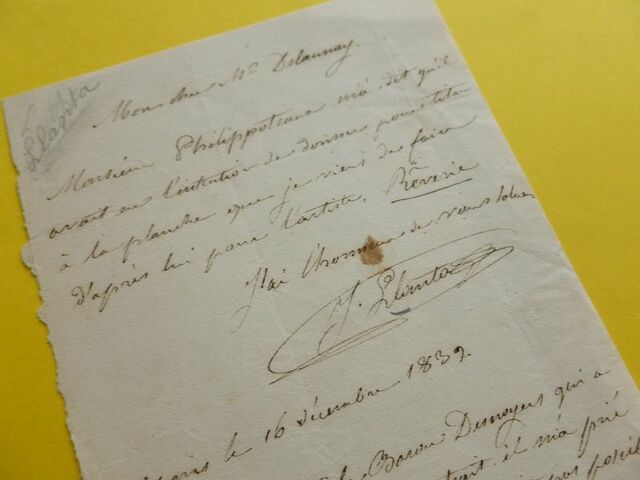 Llanta
Mon cher Mr Delaunay.
Monsieur Philippoteaux m'a dit qu'il
avait eu l'intention de donner pour titre
à la planche que je viens de faire
d'après lui pour l'artiste, Rêverie
J'ai l'honneur de vous saluer
J. Llanta
Paris le 16 décembre 1839.
le Baron Desnoyers qui a
il m'a prié
pas possible